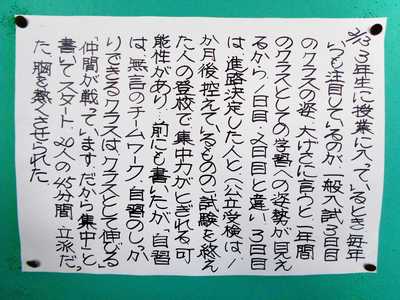 2/13 3年生に授業に入っているとき毎年
いつも注目しているのが、一般入試3日目
のクラスの姿。大げさに言うと、一年間
のクラスとしての学習への姿勢が見え
るから。1日目・2日目と違い、3日目
は、進路決定した人と、(公立受検は1
か月後控えているものの)試験を終え
た人の登校で集中力がとぎれる可
能性があり…前にも書いたが「自習
は、無言のチームワーク」。自習のしっか
りできるクラスはクラスとして伸びる。
「仲間が戦っています。だから集中」と
書いてスタート。20人の45分間、立派だっ
た。胸を熱くさせられた。